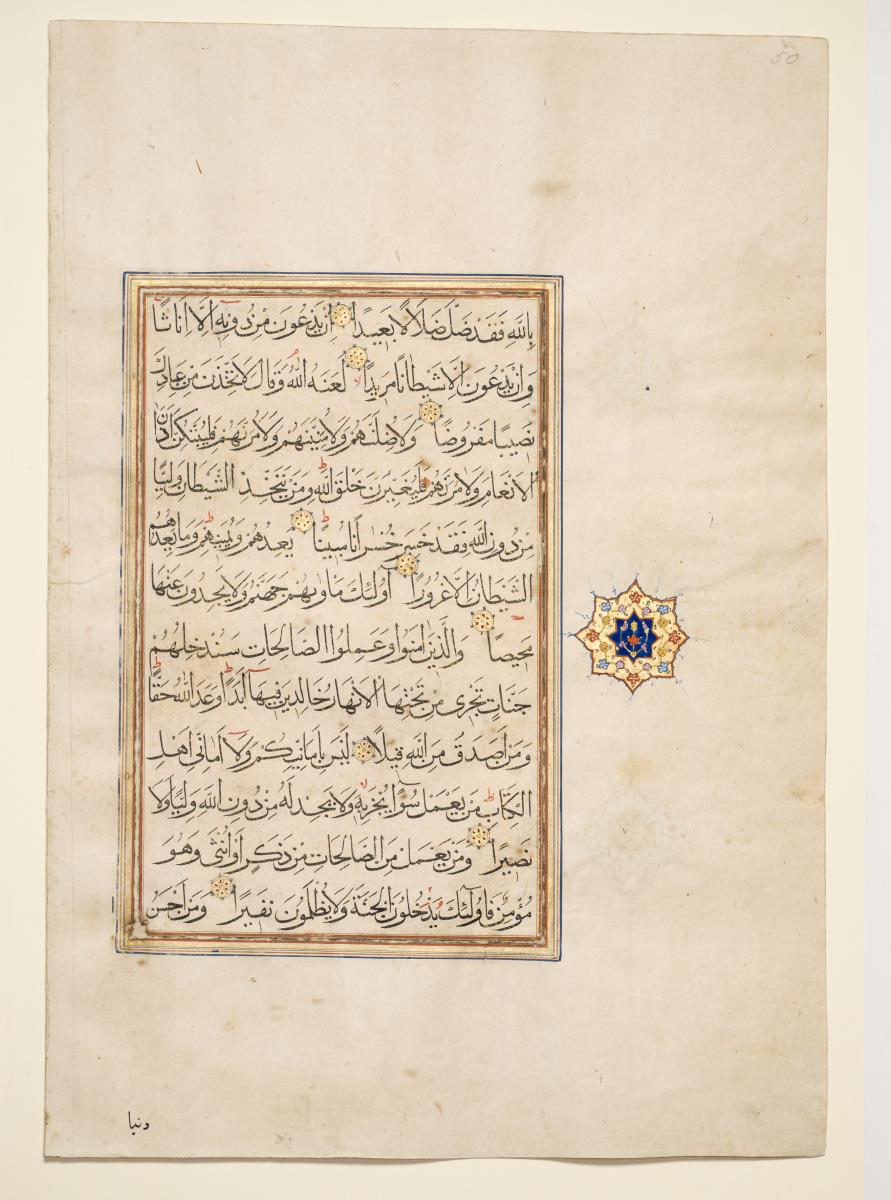 50
بِاللَّهِ فَقَدْ ضَلَّ ضَلَالًا بَعِيدًا اِنْ يَدْعُونَ مِنْ دُونِهِ اِلَّا اِنَاثًا
وَاِنْ يَدْعُونَ اِلَّا شَيْطَانًا مَرِيدًا لَعَنَهُ اللَّهُ وَقَالَ لَاَتَّخِذَنَّ مِنْ عِبَادِكَ
نَصِيبًا مَفْرُوضًا وَلَاُضِلَّنَّهُمْ وَلَاُمَنِّيَنَّهُمْ وَلَاٰمُرَنَّهُمْ فَلَيُبَتِّكُنَّ اٰذَانَ
الْاَنْعَامِ وَلَاٰمُرَنَّهُمْ فَلَيُغَيِّرُنَّ خَلْقَ اللَّهِ وَمَنْ يَتَّخِذِ الشَّيْطَانَ وَلِيًّا
مِنْ دُونِ اللَّهِ فَقَدْ خَسِرَ خُسْرَانًا مُبِينًا يَعِدُهُمْ وَيُمَنِّيهِمْ وَمَا يَعِدُهُمُ
الشَّيْطَانُ اِلَّا غُرُورًا اُولٰئِكَ مَاْوٰيهُمْ جَهَنَّمُ وَلَا يَجِدُونَ عَنْهَا
مَحِيصًا وَالَّذِينَ اٰمَنُوا وَعَمِلُوا الصَّالِحَاتِ سَنُدْخِلُهُمْ
جَنَّاتٍ تَجْرِى مِنْ تَحْتِهَا الْاَنْهَارُ خَالِدِينَ فِيهَا اَبَدًا وَعْدَ اللَّهِ حَقًّا
وَمَنْ اَصْدَقُ مِنَ اللَّهِ قِيلًا لَيْسَ بِاَمَانِيِّكُمْ وَلَا اَمَانِىِّ اَهْلِ
الْكِتَابِ مَنْ يَعْمَلْ سُوٓءًا يُجْزَ بِهِ وَلَا يَجِدْ لَهُ مِنْ دُونِ اللَّهِ وَلِيًّا وَلَا
نَصِيرًا وَمَنْ يَعْمَلْ مِنَ الصَّالِحَاتِ مِنْ ذَكَرٍ اَوْ اُنْثٰى وَهُوَ
مُؤْمِنٌ فَاُولٰئِكَ يَدْخُلُونَ الْجَنَّةَ وَلَا يُظْلَمُونَ نَقِيرًا وَمَنْ اَحْسَنُ
دنيا